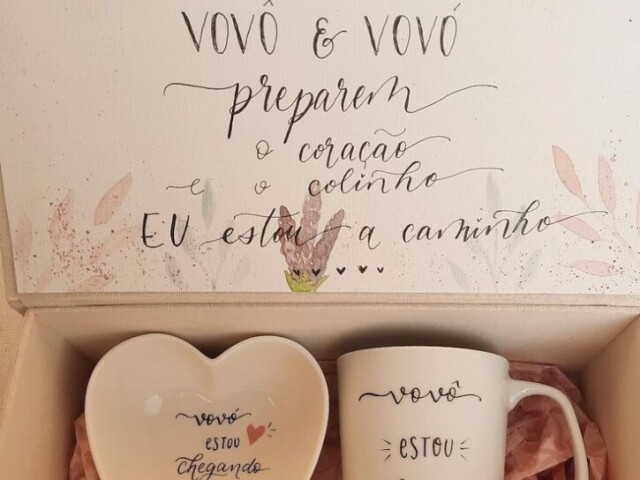 VOVÔ & VOVÓ
preparem
o coração
e o colinho
EU estou a caminho
vovó
ESTOU
chegando
vovô
ESTOU